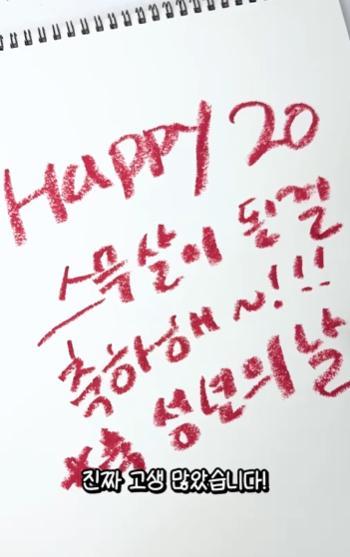 Happy 20
스무살이 된걸
축하해~!!!
성년의날
진짜 고생 많았습니다!